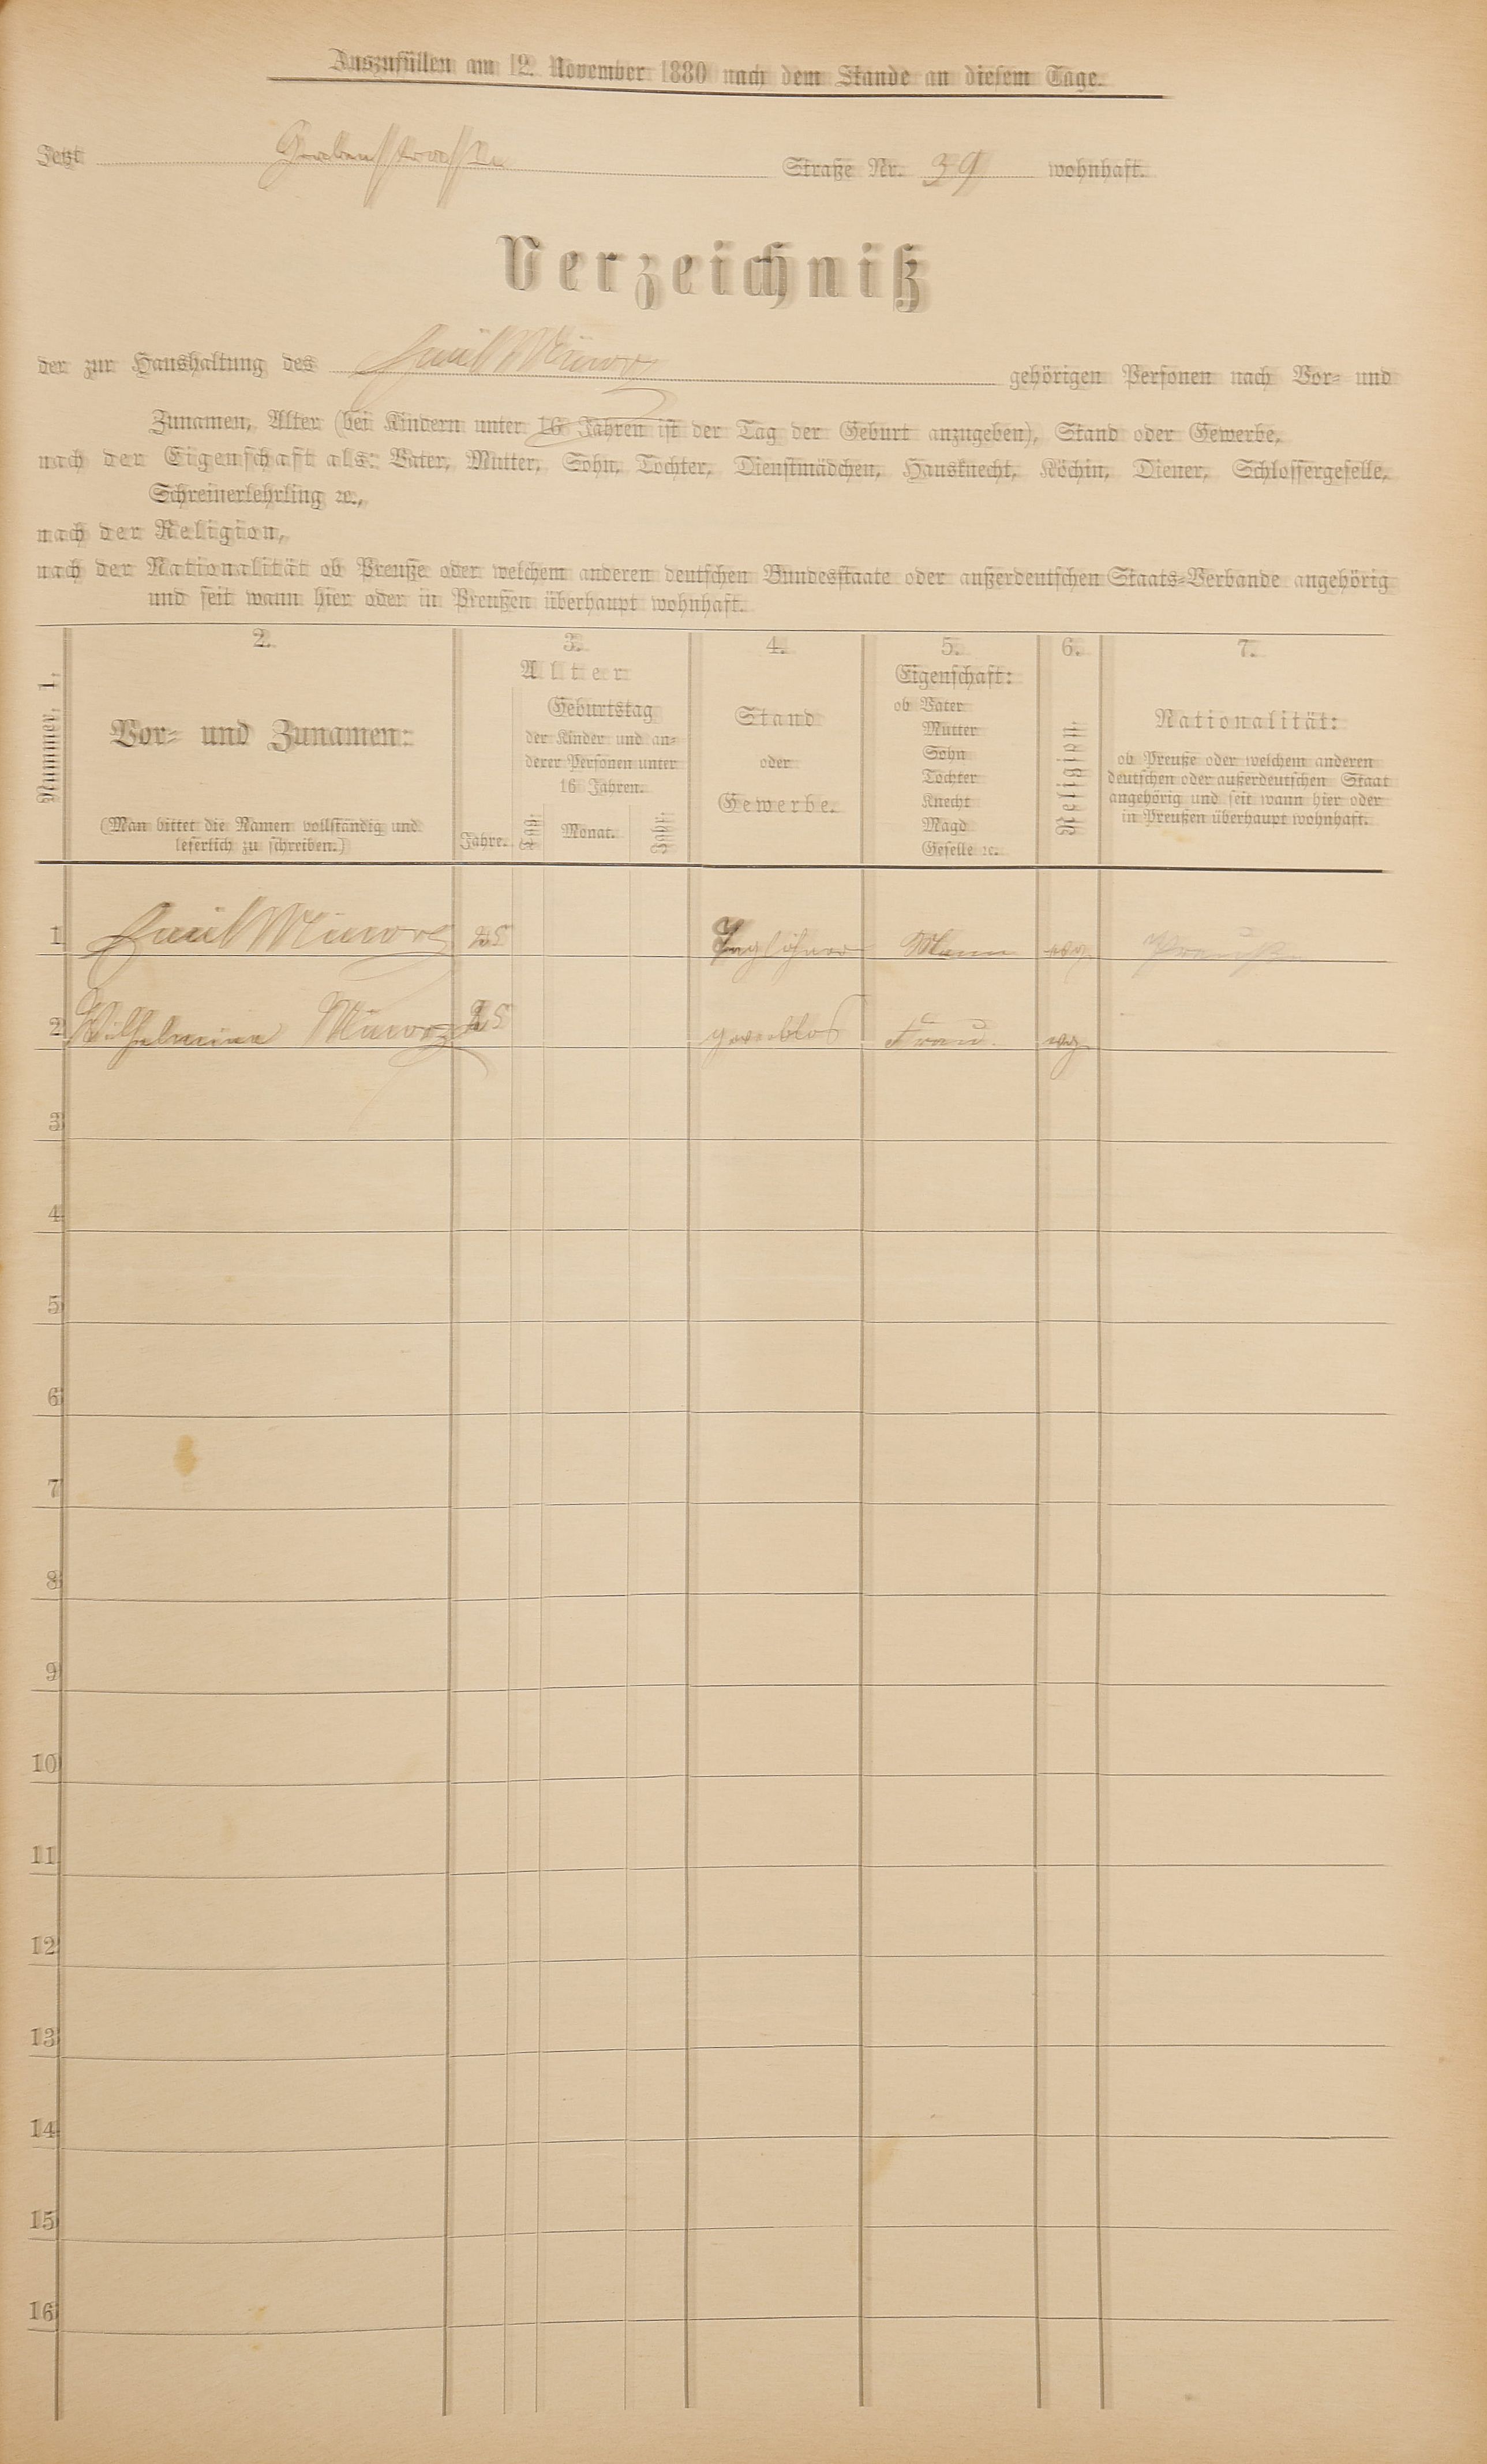 Auszufüllen am 12. November 1880 nach dem Stande an diesem Tage.
Jetzt Grabenstrasse Straße Nr. 39 wohnhaft.
Verzeichniß
der zur Haushaltung des Emil gehörigen Personen nach Vor- und
Zunamen, Alter (bei Kindern unter 16 Jahren ist der Tag der Geburt anzugeben), Stand oder Gewerbe,
nach der Eigenschaft als: Vater, Mutter, Sohn, Tochter, Dienstmädchen, Hausknecht, Köchin, Diener, Schlossergeselle,
Schreinerlehrling ꝛc.,
nach der Religion,
nach der Nationalität ob Preuße oder welchem anderen deutschen Bundesstaate oder außerdeutschen Staats-Verbande angehörig
und seit wann hier oder in Preußen überhaupt wohnhaft.
Nummer. 1.
2.
Vor- und Zunamen:
(Man bittet die Namen vollständig und
leserlich zu schreiben.)
3.
Alter
Geburtstag
der Kinder und an-
derer Personen unter
16 Jahren.
Jahre. Tag. Monat. Jahr.
4.
Stand
oder
Gewerbe.
5.
Eigenschaft:
ob Vater
Mutter
Sohn
Tochter
Knecht
Magd
Geselle ꝛc.
6.
Religion.
7.
Nationalität:
ob Preuße oder welchem anderen
deutschen oder außerdeutschen Staat
angehörig und seit wann hier oder
in Preußen überhaupt wohnhaft.
1 Emil 25 Taglöhner Mann evg. Preußen
2 Wilhelmine 25 gewerblos Frau. evg
3
4
5
6
7
8
9
10
11
12
13
14
15
16